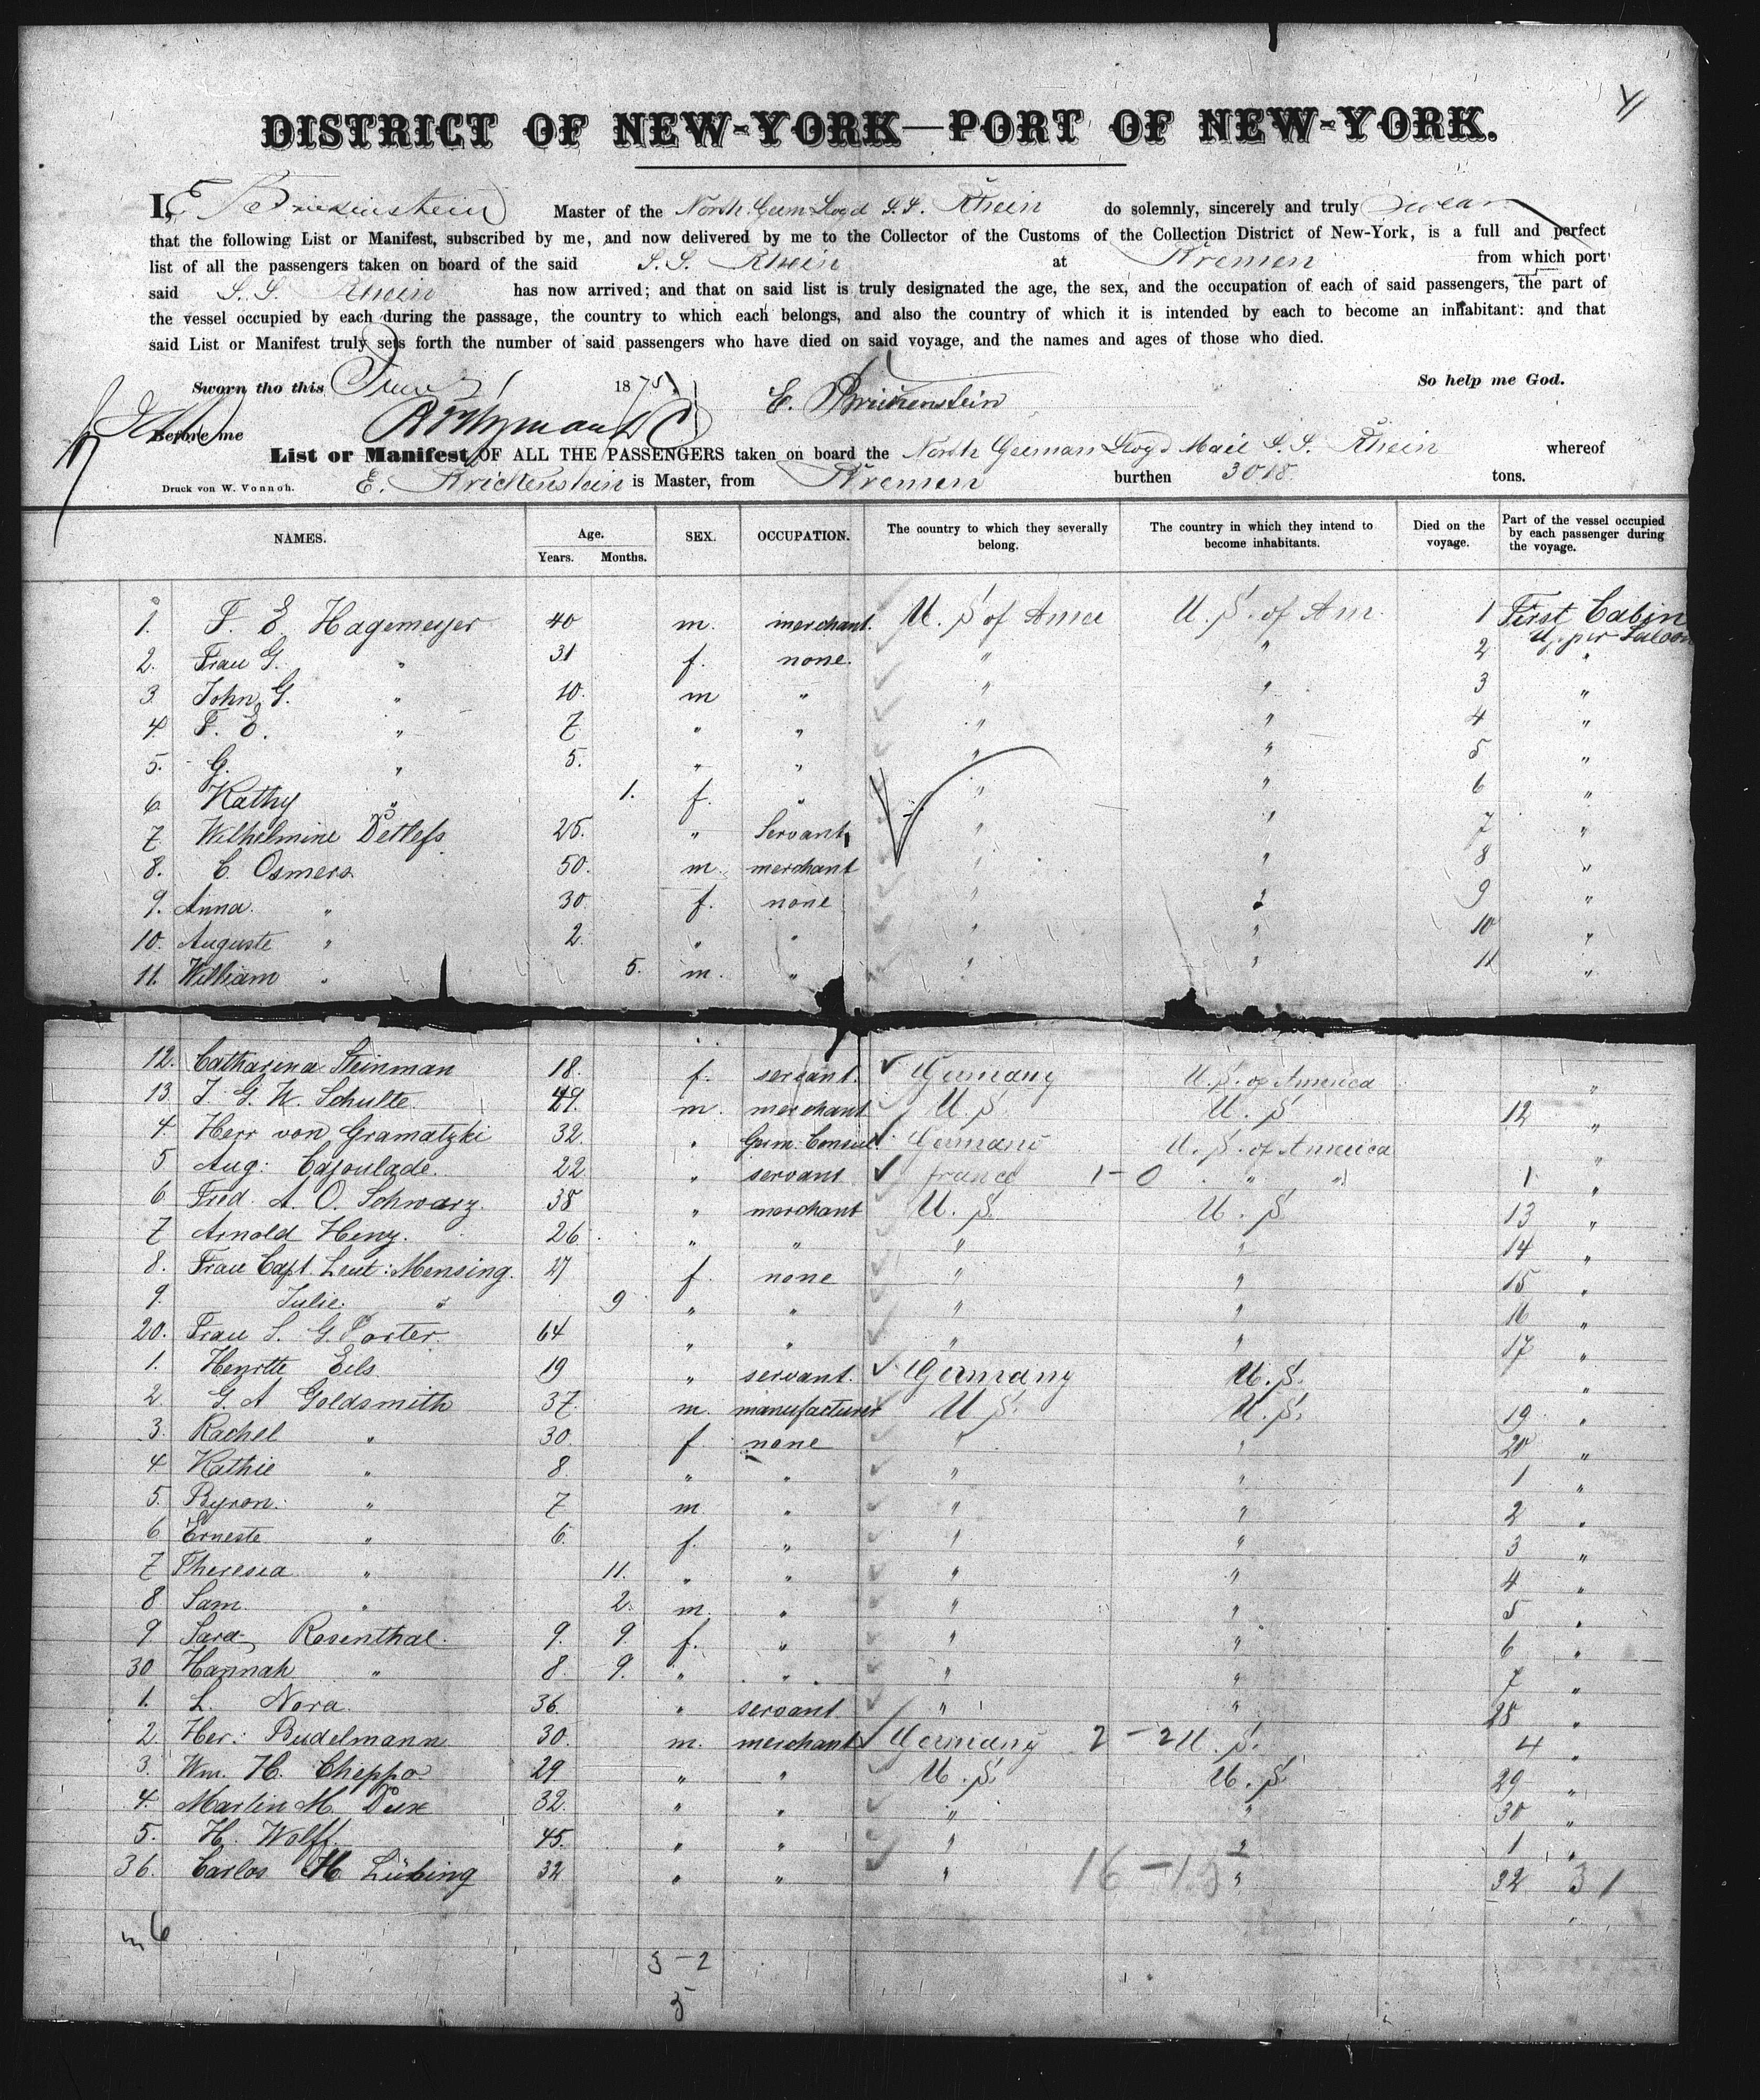 DISTRICT OF NEW-YORK—PORT OF NEW-YORK.
I, E Brickenstein Master of the North Germ Lloyd S.S. Rhein do solemnly, sincerely and truly swear
that the following List or Manifest, subscribed by me, and now delivered by me to the Collector of the Customs of the Collection District of New-York, is a full and perfect
list of all the passengers taken on board of the said S. S. Rhein at Bremen from which port
said S. S. Rhein has now arrived; and that on said list is truly designated the age, the sex, and the occupation of each of said passengers, the part of
the vessel occupied by each during the passage, the country to which each belongs, and also the country of which it is intended by each to become an inhabitant: and that
said List or Manifest truly sets forth the number of said passengers who have died on said voyage, and the names and ages of those who died.
Sworn tho this June 1 1875 So help me God.
E. Brickenstein
Before me
List or Manifest OF ALL THE PASSENGERS taken on board the North German Lloyd Mail S. S. Rhein whereof
Druck von W. Vonnoh. E. Brickenstein is Master, from Bremen burthen 3018. tons.
NAMES. Age. Years. Months. SEX. OCCUPATION. The country to which they severally belong. The country in which they intend to become inhabitants. Died on the voyage. Part of the vessel occupied by each passenger during the voyage.
1. F. E. Hagemeyer 40 m. merchant. U. S of Amer U. S. of Am. 1 First Cabin
Upper Saloon
2. Frau G. " 31 f. none. " " 2 "
3. John G. " 10. m " " " 3 "
4. F. E. " 7 " " " " 4 "
5. G. " 5. " " " " 5 "
6. Kathy " 1. f. " " " 6 "
7. Wilhelmine Detlefs 25. " Servant " " 7 "
8. C. Osmers 50. m. merchant " " 8 "
9. Anna. " 30. f. none " " 9 "
10. Auguste " 2. " " " " 10 "
11. William " 5. m. " " " 11 "
12. Catharina Steinman 18. f. servant. Germany U. S. of America "
13. J. G. W. Schulte. 49. m. merchant U. S U. S 12 "
4. Herr von Gramatzki 32. " Germ. Consul. Germany U. S. of America "
5 Aug: Cajoulade. 22 " servant france 1-0 " " 1 "
6. Fred. A. O. Schwarz. 38 " merchant U. S. U. S. 13 "
7 Arnold Heny. 26 " " " " 14 "
8. Frau Capt. Leut: Mensing. 27 f. none " " 15 "
9. Julie. " 9 " " " " 16 "
20. Frau S. G. Porter. 64 " " " " 17 "
1. Henrtte Eils 19 " servant. Germany U. S. "
2. G. A Goldsmith 37. m. manufacturer U S. U. S. 19 "
3. Rachel " 30. f. none " " 20 "
4 Kathie " 8. " " " " 1 "
5. Byron. " 7 m. " " " 2 "
6 Erneste " 6. f. " " " 3 "
7 Theresia " 11. " " " " 4 "
8 Sam. " 2. m. " " " 5 "
9. Sara Rosenthal. 9. 9. f. " " " 6 "
30 Hannah " 8. 9. " " " " 7 "
1. L. Nora. 36. " servant " " 28 "
2. Her: Budelmann 30. m. merchant Germany 2-2 U. S. 4 "
3. Wm. H. Cheppo. 29 " " U. S. U. S. 29 "
4. Martin M. 32. " " " " 30 "
5. H. Wolff. 45. " " " " 1 "
36. Carlos H. Lübing 32 " " " 16-15 " 32 31
m 6
3-2
5